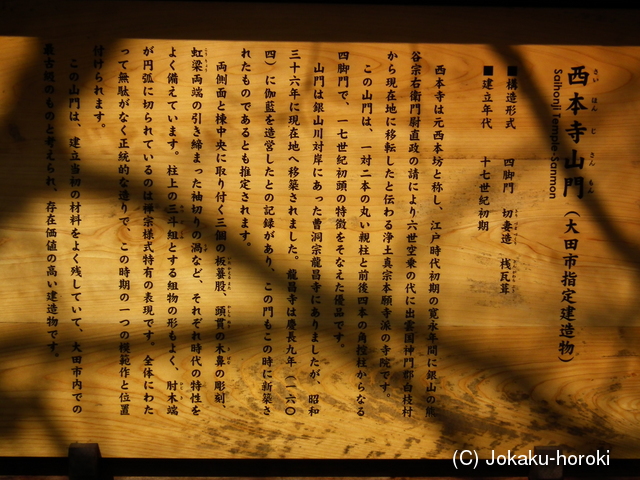 西本寺山門（大田市指定建造物）
さい ほん じ さん もん
Saihonji Temple-Sanmon
■構造形式　四脚門　切妻造　桟瓦葺
■建立年代　十七世紀初期
西本寺は元西本坊と称し、江戸時代初期の寛永年間に銀山の熊
谷宗右衛門尉直政の請により六世空乗の代に出雲国神門郡白枝村
から現在地に移転したと伝わる浄土真宗本願寺派の寺院です。
この山門は、一対二本の丸い親柱と前後四本の角控柱からなる
四脚門で、一七世紀初頭の特徴をそなえた優品です。
山門は銀山川対岸にあった曹洞宗龍昌寺にありましたが、昭和
三十六年に現在地へ移築されました。龍昌寺は慶長九年（一六〇
四）に伽藍を造営したとの記録があり、この門もこの時に新築さ
れたものであるとも推定されます。
両側面と棟中央に取り付く三個の板蟇股、頭貫の木鼻の彫刻、
虹梁両端の引き締まった袖切りの渦など、それぞれ時代の特性を
よく備えています。柱上の三斗組とする組物の形もよく、肘木端
が円弧に切られているのは禅宗様式特有の表現です。全体にわた
って無駄がなく正統的な造りで、この時期の一つの模範作と位置
付けられます。
この山門は、建立当初の材料をよく残していて、大田市内での
最古級のものと考えられ、存在価値の高い建造物です。
(C) Jokaku-horoki